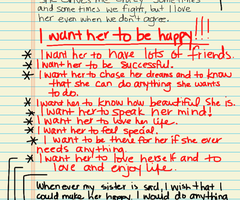 and some times we fight, but I love
her even when we don't agree.
I want her to be happy!!!
* I want her to have lots of friends.
* I want her to be successful.
* I want her to chase her dreams and to know
that she can do anything she wants
to do.
* I want her to know how beautiful she is.
* I want her to speak her mind!
* I want her to love her life.
* I want her to feel special.
* I want to be there for her if she ever
needs anything.
* I want her to love herself and to
love and enjoy life.
Whenever my sister is sad, I wish that I
could make her happy. I would do anything